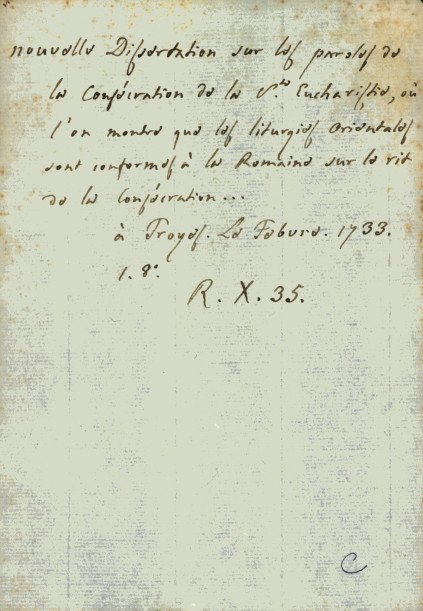 nouvelle Dissertation sur les paroles de
la Consécration de la S.te Eucharistie, où
l'on montre que les liturgies orientales
sont conformes à la Romaine sur le rit
de la Consécration...
à Troyes. Le Febure. 1733.
1. 8°.
R. X. 35.
C